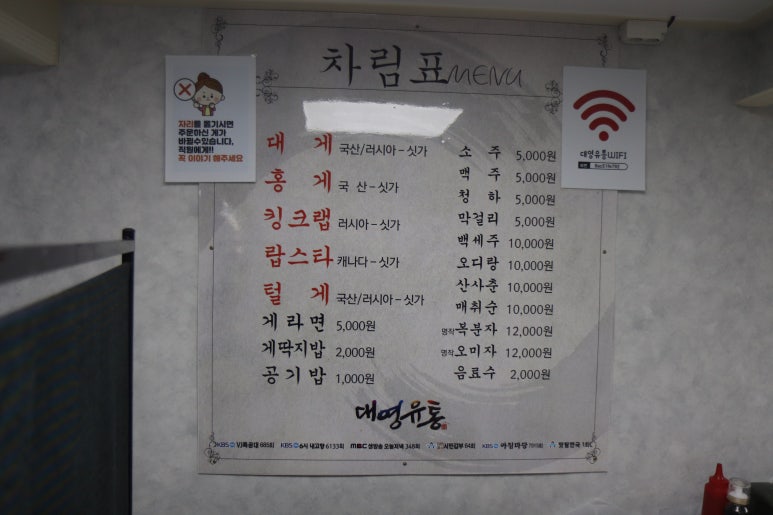 차림표 MENU
자리를 옮기시면
주문하신 게가
바뀔수있습니다.
직원에게!!
꼭 이야기 해주세요
대영유통WIFI
대 게 국산/러시아 - 싯가
홍 게 국 산 - 싯가
킹크랩 러시아 - 싯가
랍스타 캐나다 - 싯가
털 게 국산/러시아 - 싯가
게라면 5,000원
게딱지밥 2,000원
공기밥 1,000원
소 주 5,000원
맥 주 5,000원
청 하 5,000원
막걸리 5,000원
백세주 10,000원
오디랑 10,000원
산사춘 10,000원
매취순 10,000원
명작복분자 12,000원
명작오미자 12,000원
음료수 2,000원
대영유통
KBS VJ특공대 685회 KBS 6시 내고향 6133회 MBC 생방송 오늘저녁 348회 서민갑부 64회 KBS 아침마당